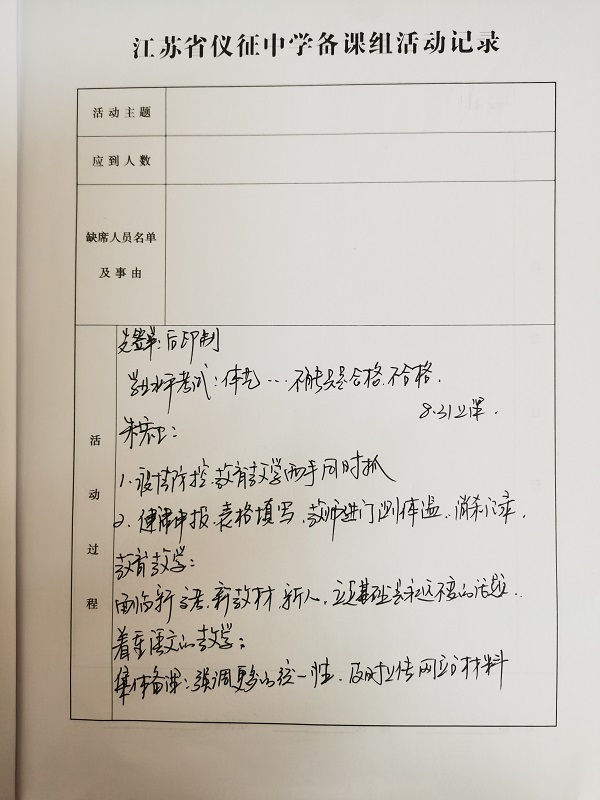 江苏省仪征中学备课组活动记录
活动主题
应到人数
缺席人员名单
及事由
活动过程
先签单:后印制
学业水平考试:体艺…不能只是合格.不合格.
8.31上课.
1.疫情防控,教育教学两手同时抓
2.健康申报.表格填写.教师进门测体温.消杀记录.
教育教学:
面临新高考.新教材.新人.立足基础是永远不变的话题.
着重语文的教学:
集体备课:强调更多的统一性.及时上传网立方材料